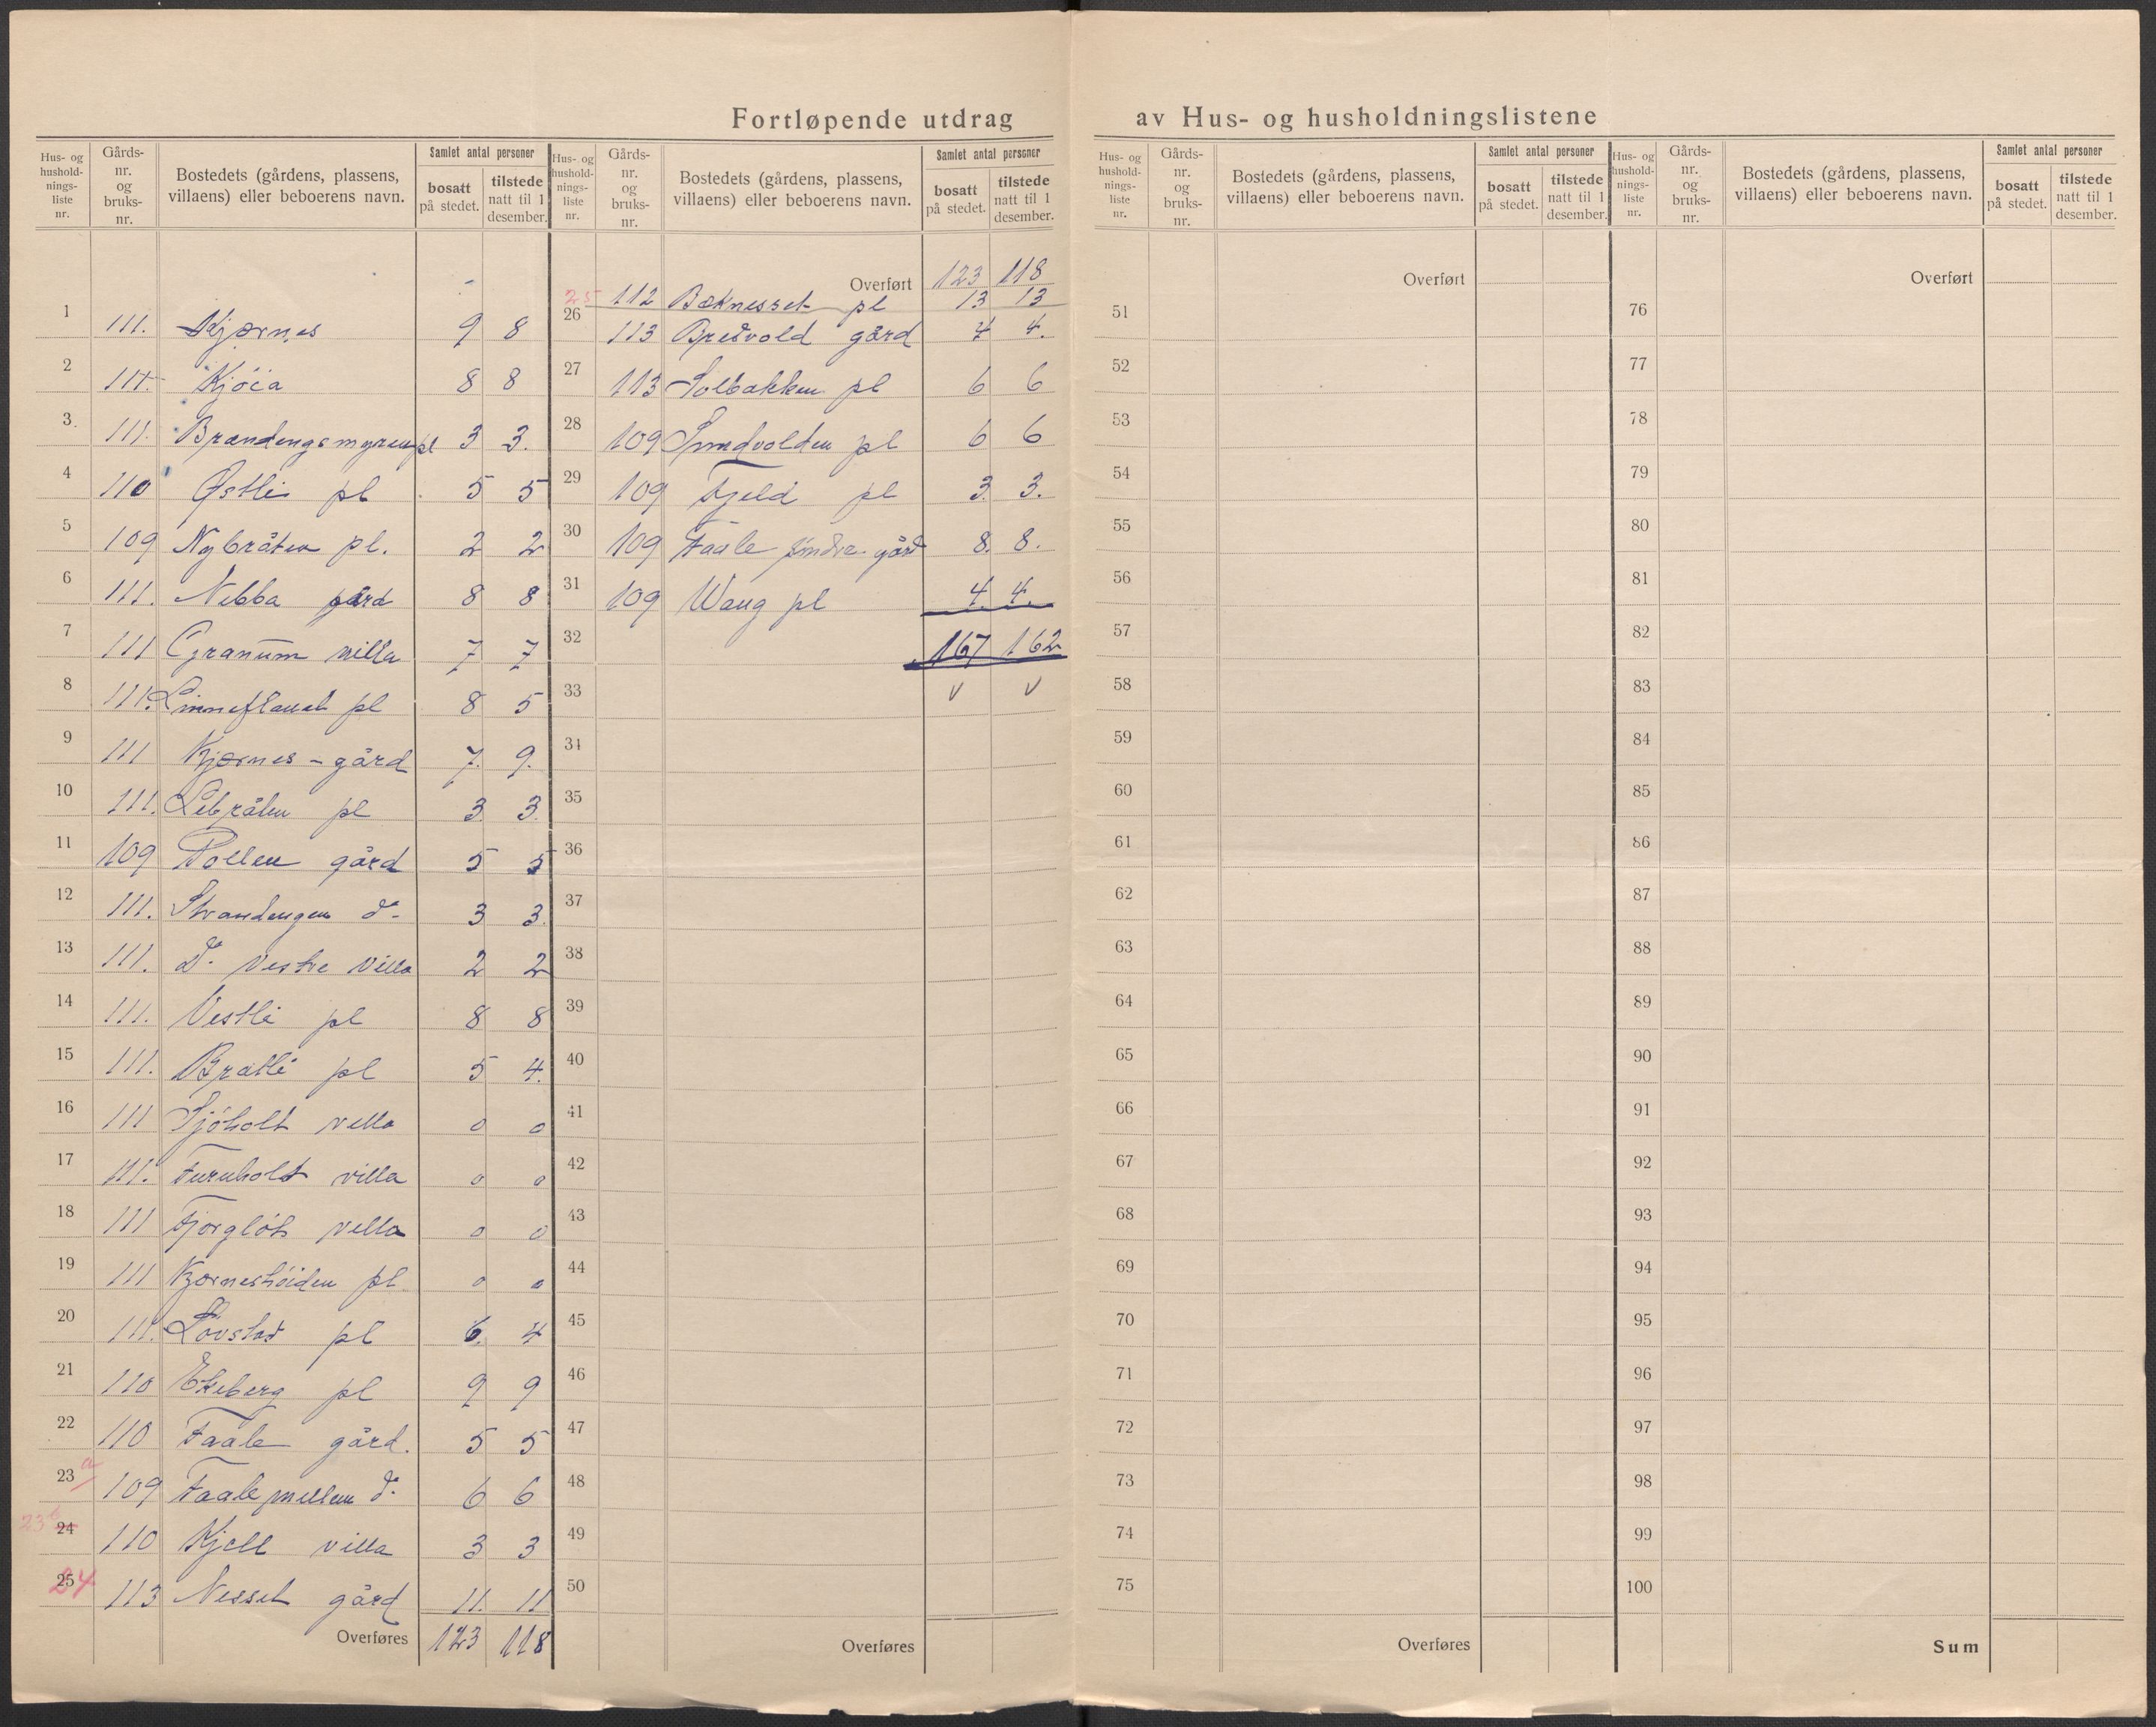 Fortløpende utdrag av Hus- og husholdningslistene
Hus- og hushold-nings-liste nr. | Gårds-nr. og bruks-nr. | Bostedets (gårdens, plassens, villaens) eller beboerens navn. | Samlet antal personer | bosatt på stedet. | tilstede natt til 1 desember.
1 111. Kjærnes 9 8
2 111. Kjøia 8 8
3. 111. Brændengsmyren pl 3 3.
4 110 Østli pl 5 5
5 109 Nybråten pl. 2 2
6 111. Nebba gård 8 8
7 111 Granum villa 7 7
8 111. Linneflaset pl 8 5
9 111 Kjærnes - gård 7. 9.
10 111. Lebråten pl 3. 3.
11 109 Pollen gård 5 5
12 111. Strandengen do- 3 3.
13 111. Do. vestre villa 2 2
14 111. Vestli pl 8 8
15 111. Bratli pl 5 4.
16 111 Sjøholt villa 0 0
17 111. Furuholt villa 0 0
18 111 Fjorgløt villa 0 0
19 111 Kjærneshøiden pl 0 0
20 111. Løvstad pl 6. 4
21 110 Ekeberg pl 9 9
22 110 Faale gård. 5 5
23 a 109 Faale mellem do. 6 6
23b 24 110 Kjell villa 3 3
25 24 113 Nesset gård 11. 11
Overføres 123 118
Hus- og hushold-nings-liste nr. | Gårds-nr. og bruks-nr. | Bostedets (gårdens, plassens, villaens) eller beboerens navn. | Samlet antal personer | bosatt på stedet. | tilstede natt til 1 desember.
Overført 123 118
25 112 Bæknesset pl 13 13
26 113 Bredvold gård 4 4.
27 113 Solbakken pl 6 6
28 109 Sundvolden pl 6 6
29 109 Fjeld pl 3. 3.
30 109 Faale søndre gård 8. 8.
31 109 Wang pl 4. 4.
32 167 162
33 v v
34
35
36
37
38
39
40
41
42
43
44
45
46
47
48
49
50
Overføres
Hus- og hushold-nings-liste nr. | Gårds-nr. og bruks-nr. | Bostedets (gårdens, plassens, villaens) eller beboerens navn. | Samlet antal personer | bosatt på stedet. | tilstede natt til 1 desember.
Overført
51
52
53
54
55
56
57
58
59
60
61
62
63
64
65
66
67
68
69
70
71
72
73
74
75
Overføres
Hus- og hushold-nings-liste nr. | Gårds-nr. og bruks-nr. | Bostedets (gårdens, plassens, villaens) eller beboerens navn. | Samlet antal personer | bosatt på stedet. | tilstede natt til 1 desember.
Overført
76
77
78
79
80
81
82
83
84
85
86
87
88
89
90
91
92
93
94
95
96
97
98
99
100
Sum